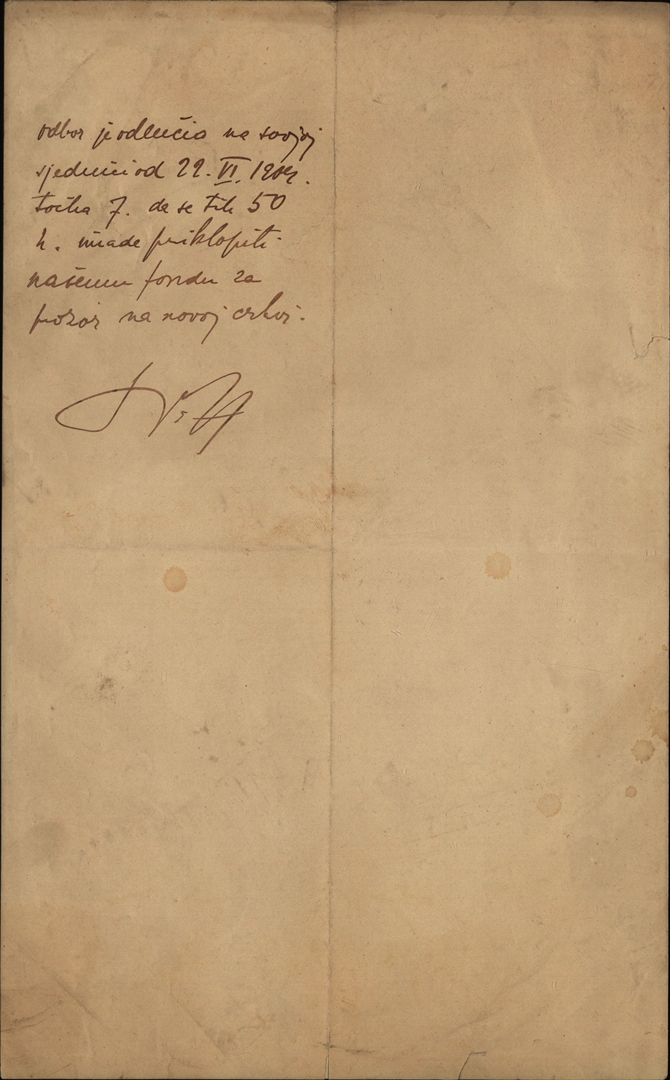 odbor je odlučio na svojoj
sjednici od 22. VI. 1904.
točka 7. da se tih 50
k. imade priklopiti
našemu fondu za
pozor na novoj crkvi.